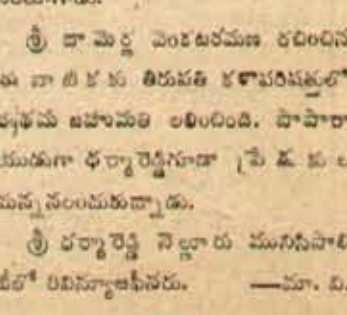 శ్రీ దామెర్ల వెంకటరమణ రచించిన
ఈ నాటికకు తిరుపతి కళాపరిషత్తులో
ప్రథమ బహుమతి లభించింది. పాపారా
యుడుగా ధర్మారెడ్డిగూడా ప్రేక్షకుల
మన్ననలందుకున్నాడు.
శ్రీ ధర్మారెడ్డి నెల్లూరు మునిసిపాలి
టీలో రివిన్యూఆఫీసరు. —మా. వి.